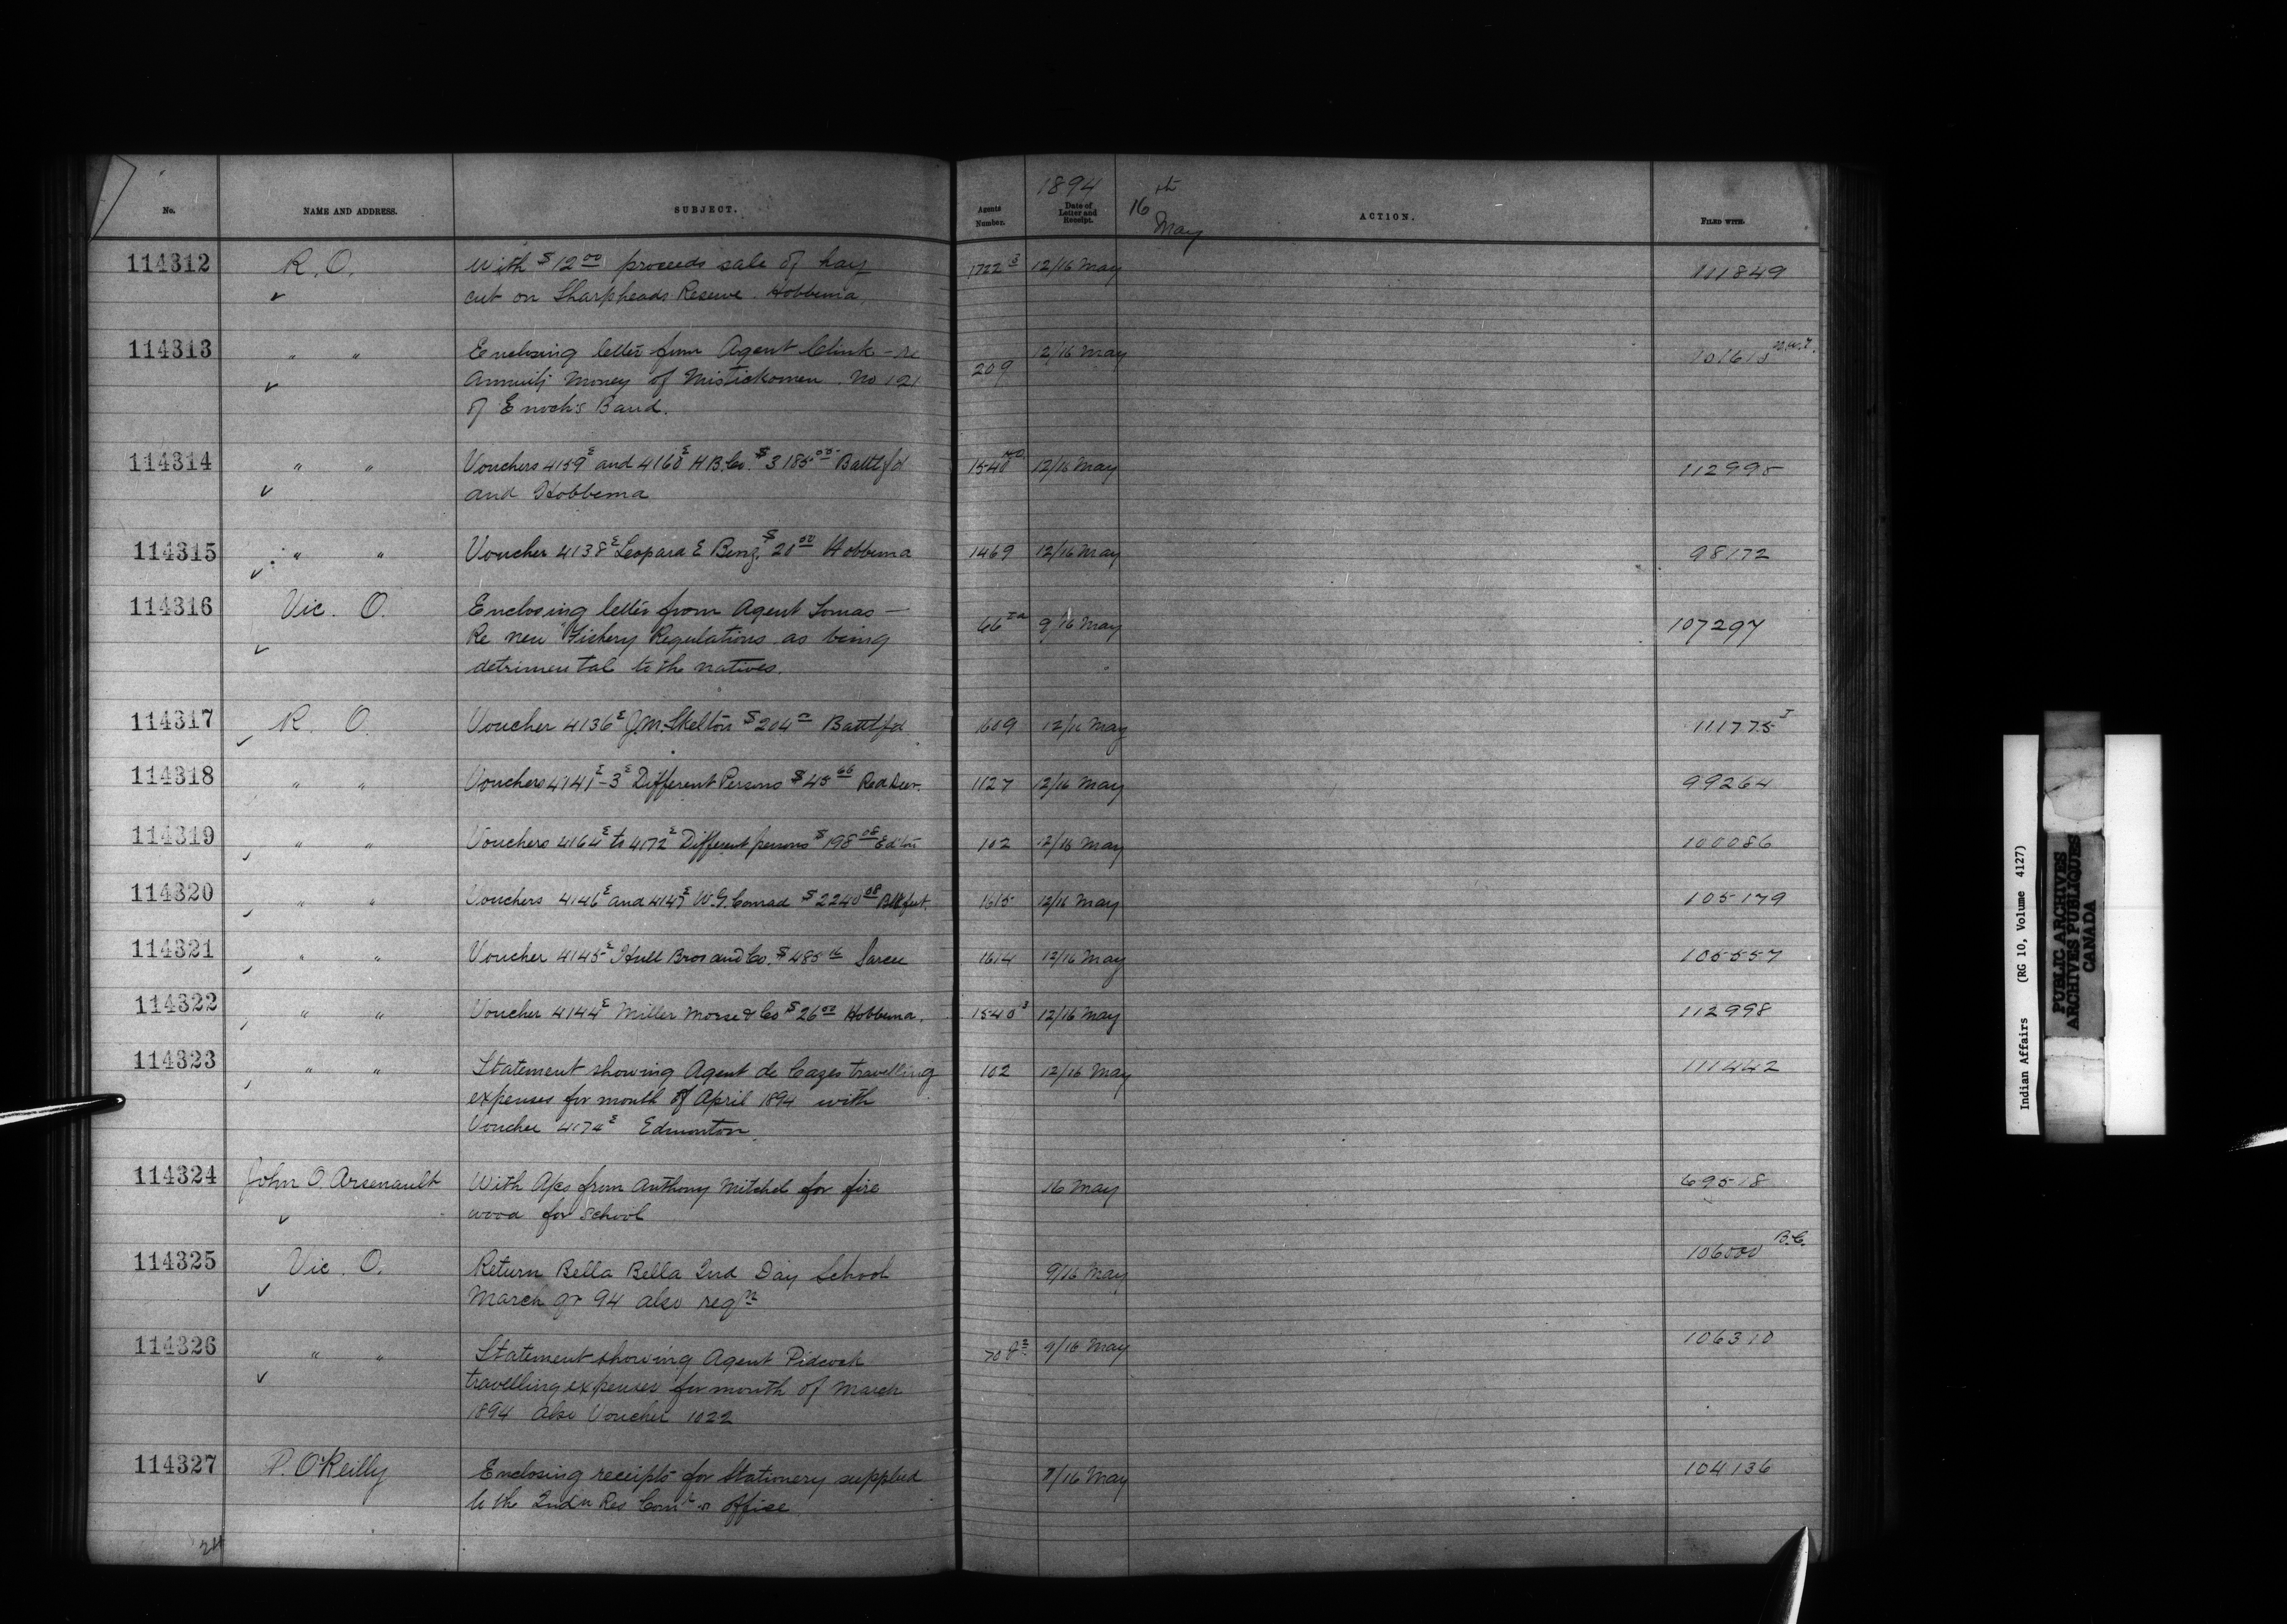 1894 16th May
No. NAME AND ADDRESS. SUBJECT. Agents Number. Date of Letter and Receipt. ACTION. FILED WITH.
114312 R. O. With $12 00 proceeds sale of hay 1722 3 12/16 May 111849
cut on Sharpheads Reserve. Hobbema,
114313 " " Enclosing letter from Agent Clink - re 209 12/16 May 101613 N.W.T.
Annuity Money of Mistickomen. No 121
of Enoch's Band.
114314 " " Vouchers 4159 E and 4160 E H B. Co. $3185 05 Battlfd 1540 12/16 May 112995
and Hobbema
114315 " " Voucher 4138 E Leopard E Benz, $20 00 Hobbema 1469 12/16 May 98172
114316 Vic. O. Enclosing letter from Agent Lomas — 66 9/16 May 107297
Re new Fishery Regulations as being
detrimental to the natives.
114317 R. O. Voucher 4136 E J.M. Skelton $204 Battlfd 1609 12/16 May 111775
114318 " " Vouchers 4141 E - 3 E Different Persons $45 66 Red Deer. 1127 12/16 May 99264
114319 " " Vouchers 4164 E to 4172 E Different persons $198 08 Ed'ton 102 12/16 May 100086
114320 " " Vouchers 4146 E and 4147 E W. G. Conrad $2240 08 Blkfeet. 1615 12/16 May 105179
114321 " " Voucher 4145 E Hull Bros and Co. $485 16 Sarcee 1614 12/16 May 105557
114322 " " Voucher 4144 E Miller Morse & Co $26 00 Hobbema. 1540 3 12/16 May 112998
114323 " " Statement showing Agent de Cazes travelling 102 12/16 May 111442
expenses for month of April 1894 with
Voucher 4174 E Edmonton.
114324 John O. Arsenault With A/cs from Anthony Mitchel for fire 16 May 69518
wood for school
114325 Vic. O. Return Bella Bella Ind Day School 9/16 May 106000 B.C.
March qr 94 also reqn
114326 " " Statement showing Agent Pidcock 70 9/16 May 106310
travelling expenses for month of March
1894 also Voucher 1022
114327 P. O'Reilly Enclosing receipts for Stationery supplied 7/16 May 104136
to the Indn Res Comrs office
Indian Affairs (RG 10, Volume 4127)
PUBLIC ARCHIVES
ARCHIVES PUBLIQUES
CANADA